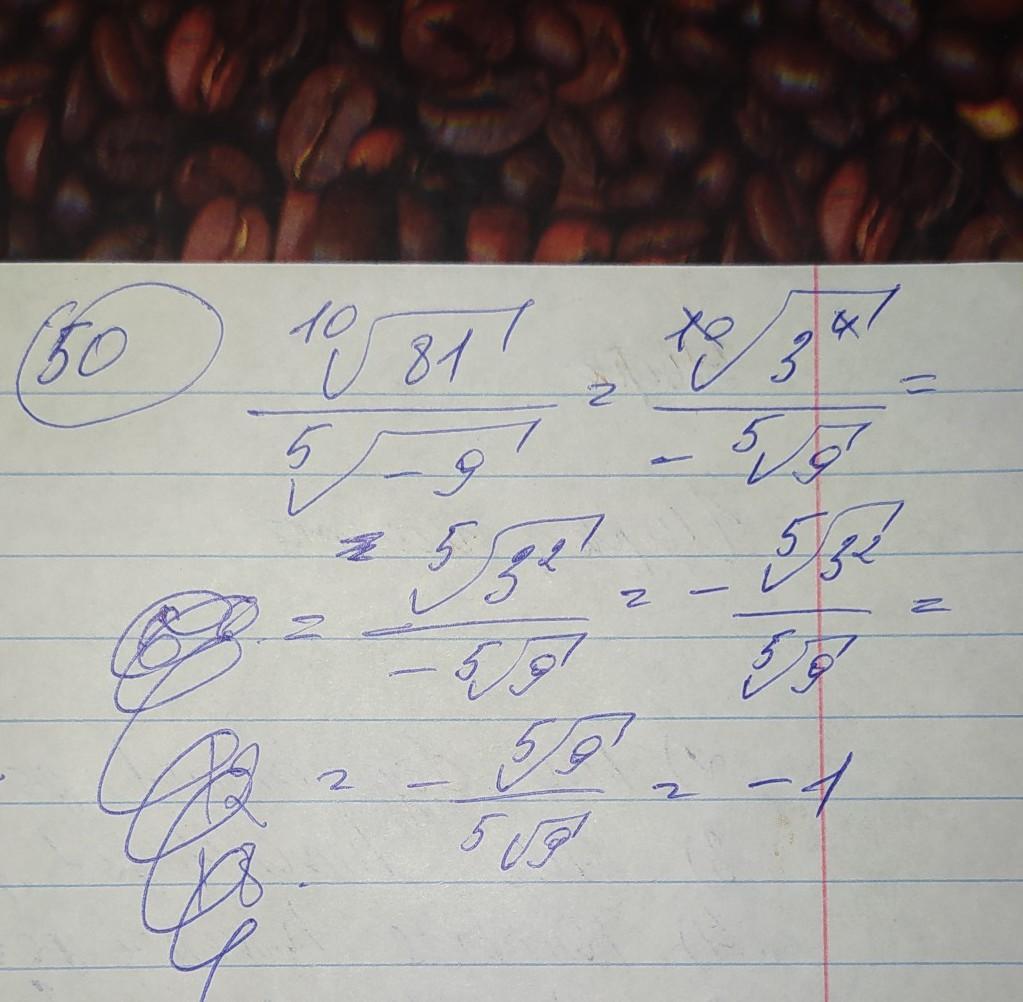 50 ¹⁰√81 / ⁵√-9 = ¹⁰√3⁴ / -⁵√9 =
= ⁵√3² / -⁵√9 = - ⁵√3² / ⁵√9 =
= - ⁵√9 / ⁵√9 = -1